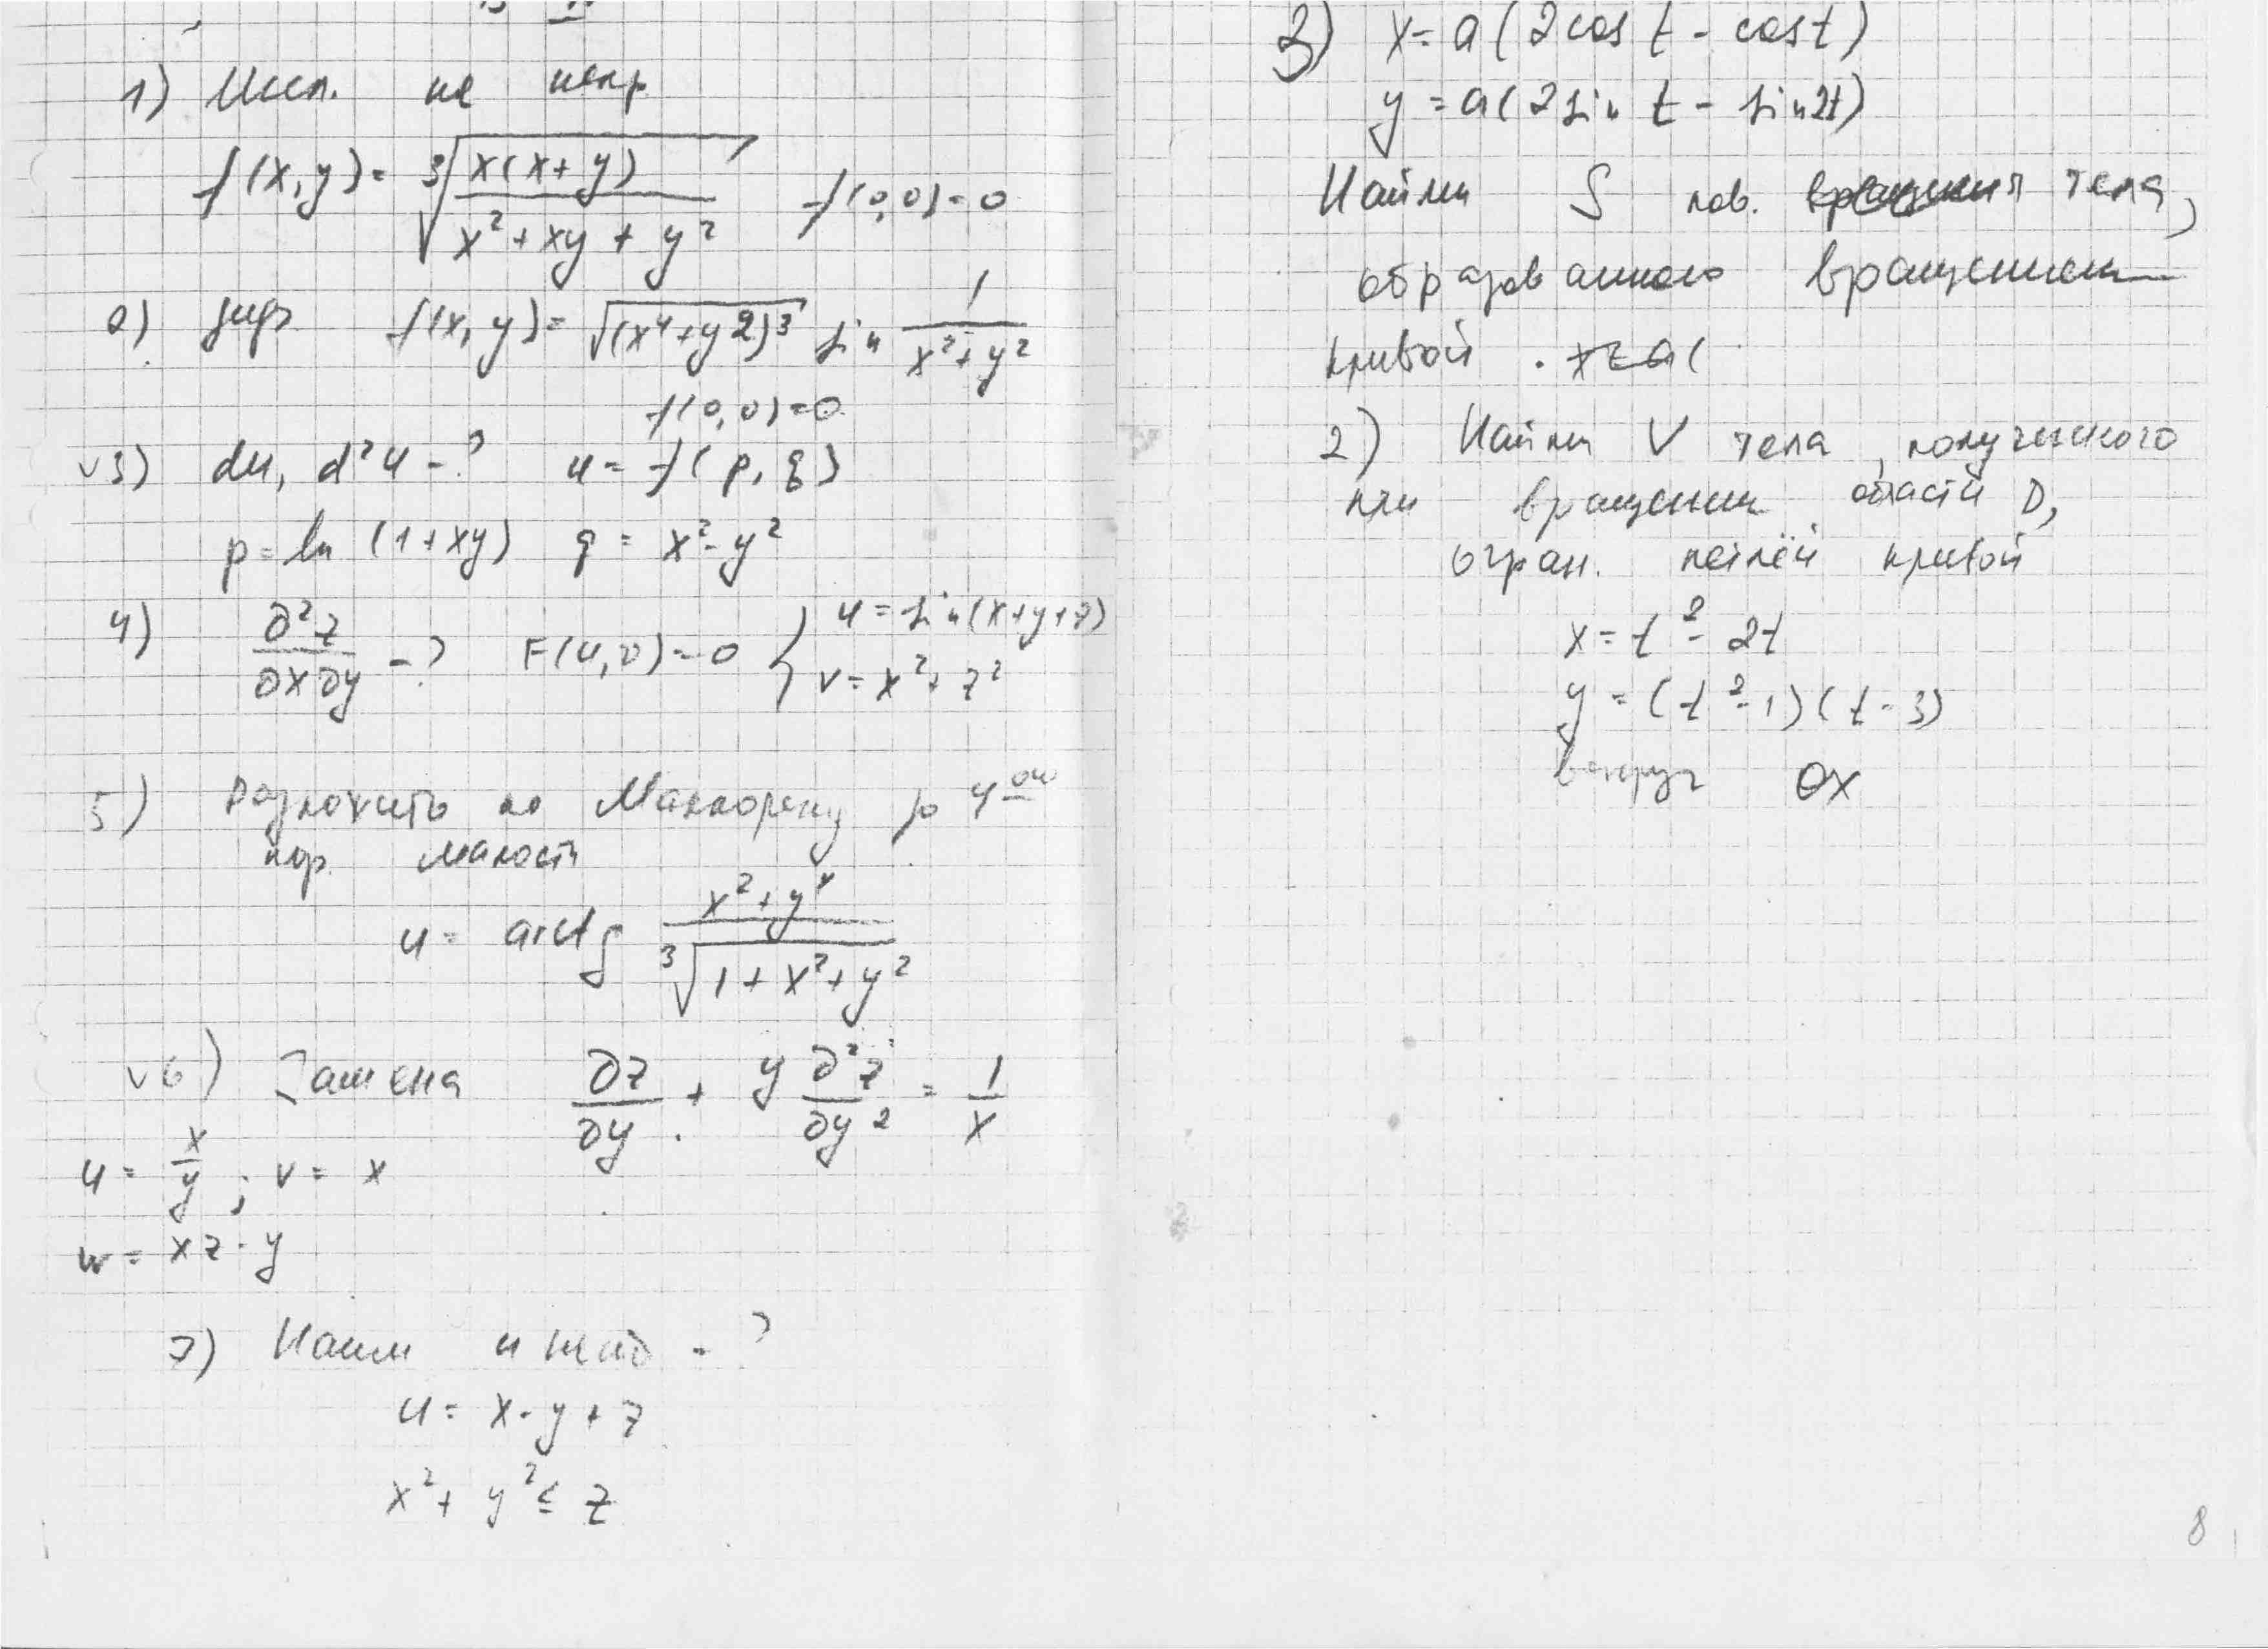 1) Иссл. на непр.
f(x,y) = ∛(x(x+y) / (x²+xy+y²)) f(0,0)=0
2) диф f(x,y)= √((x⁴+y2)³) sin 1/(x²+y²)
f(0,0)=0
v3) du, d²u - ? u = f(p,q)
p = ln (1+xy) q = x²-y²
4) ∂²z/∂x∂y - ? F(u,v)=0 { u = sin(x+y+z)
v = x²+z²
5) Разложить по Маклорену до 4ой
пор. малости
u = arctg (x²+y⁴)/∛(1+x²+y²)
v6) Замена ∂z/∂y + y ∂²z/∂y² = 1/x
u = x/y ; v = x
w = xz-y
7) Наим и наиб - ?
u = x-y+z
x²+y² ≤ z
3) x = a(2cos t - cost)
y = a(2sin t - sin2t)
Найти S пов. вращения тела,
образованного вращением
кривой . x=a(
2) Найти V тела, полученного
при вращении области D,
огран. петлёй кривой
x = t²-2t
y = (t²-1)(t-3)
вокруг OX
8